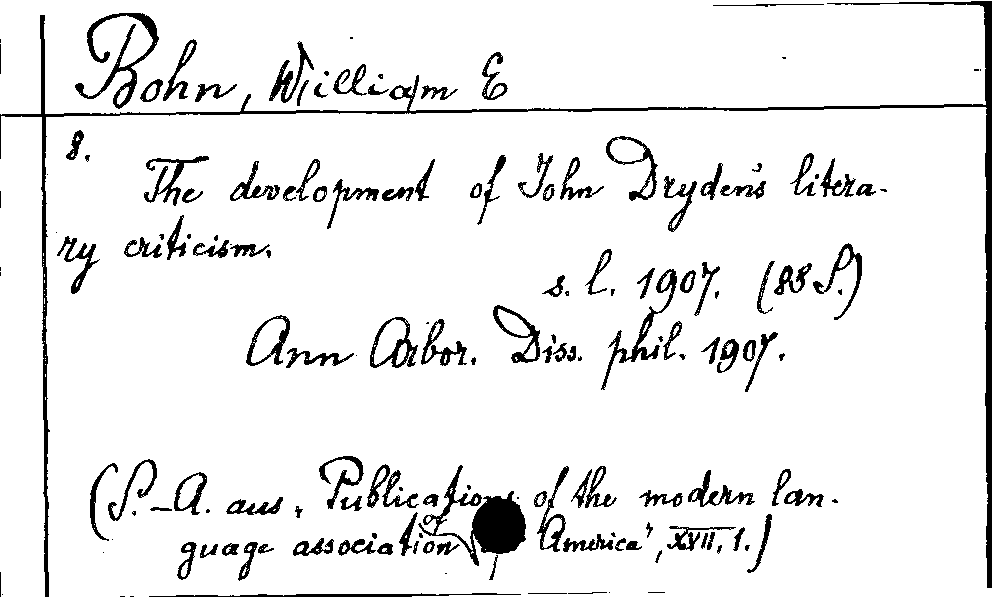 Bohn, William E
8.
The development of John Dryden's litera-
ry criticism.
s. l. 1907. (88 S.)
Ann Arbor. Diss. phil. 1907.
(S.-A. aus „Publications of the modern lan-
guage association of America", XVII, 1.)